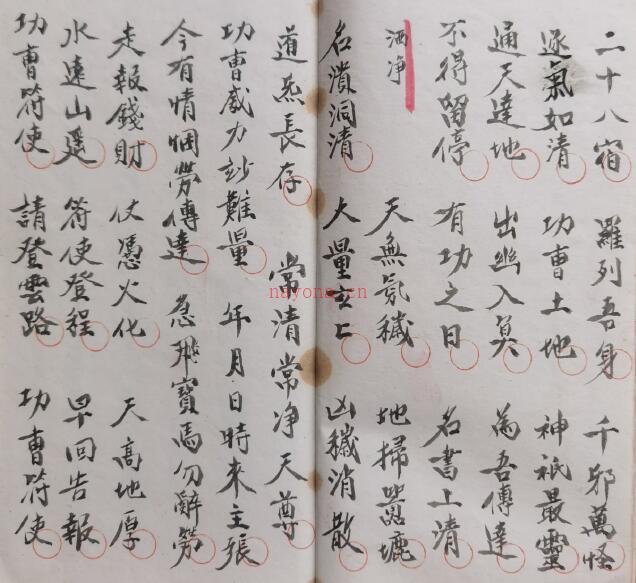 二十八宿 羅列吾身 千邪萬怪
逐氣如清 功曹土地 神祇最靈
通天達地 出幽入冥 為吾傳達
不得留停 有功之日 名書上清
洒净 天無氛穢 地掃 塵
名 洞清 大量玄上 凶穢消散
道炁長存 常清常净天尊
功曹威力妙難量 年月日時來主張
今有情悃勞傳達 急飛寶馬勿辭勞
走報錢財 仗憑火化 天高地厚
水遠山遥 符使登程 早回告報
功曹符使 請登雲路 功曹符使
nayona.cn